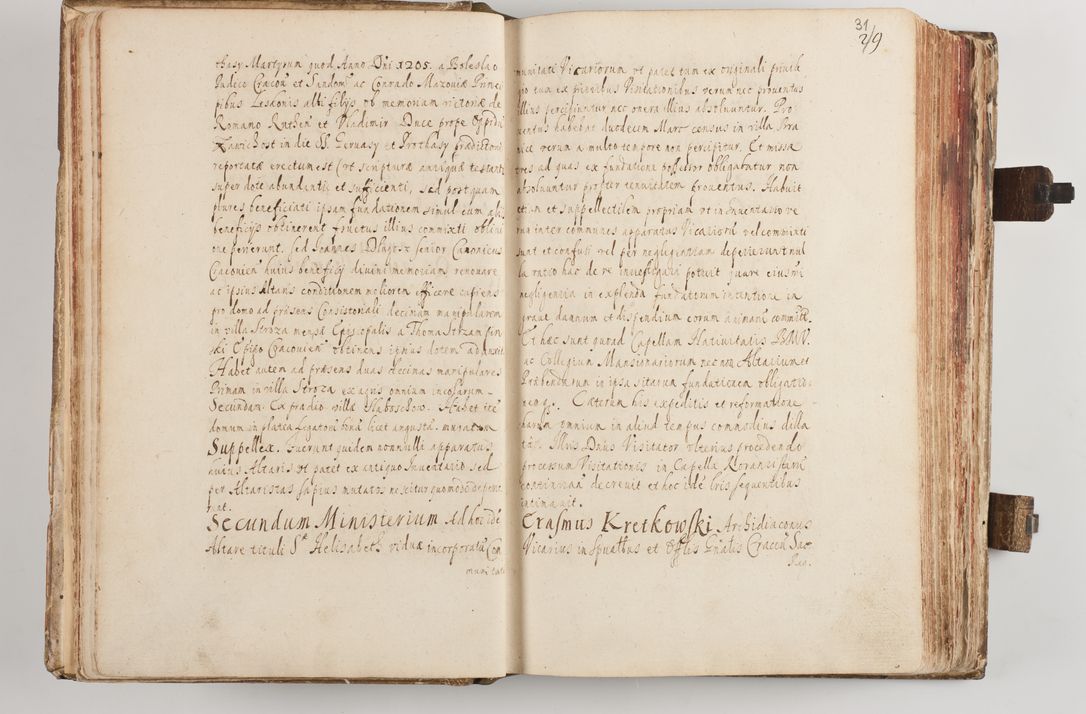 thasy Martyrum quod Anno Dni 1205. a Boleslao
Iudice Cracou et Sandom ac Conrado Mazouiæ Princi
pibus Leskonis albi filijs ob memoriam victoriæ de
Romano Ruthen et Vladimir Duce prope Oppidū
Zawichost in die SS. Geruasy et Prothasy prædictoru
reportatæ erectum est (vt scripturæ antiquæ testantr)
super dote abundenti et sufficienti, sed postquam
plures beneficiati ipsam fundationem simul cum alijs
beneficijs obtinerent fructus illius commixti obliui
one perierunt. sed Ioannes Długosz senior Canonicus
Cracouien huius beneficij diuini memoriam renouare
ac ipsius Altaris conditionem meliorem efficere cupiens
pro domo ad præsens Consistoriali decimam manipularem
in villa Stroza mensæ Episcopalis a Thoma Strzampin
ski Episco Cracouien obtinens ipsius dotem adauxit
Habet autem ad præsens duas decimas manipulares
Primam in villa Stroza ex agris omnium incolarum.
Secundam. Ex prædio villæ Głaboschow. Habet ite
domum in platea Legatoru bonā licet angustā. muratam
Suppellex. Fuerunt quidem nonnulli apparatus
huius Altaris vt patet ex antiquo Inuentario sed
per Altaristas sæpius mutatos nescitur quomodo deperie
runt.
Secundum Ministerium Ad hoc idē
Altare tituli Stæ Helisabeth viduæ incorporatū Com
munitati
munitati Vicariorum vt patet tum ex originali priuile
gio tum ex prioribus Visitationibus verum nec prouentus
illius percipiuntur nec onera illius absoluuntur. Pro
uentus habebat duodecem Marc census in villa Pra
nice verum a multo tempore non percipitur. Et missæ
tres ad quas ex fundatione possessor obligabatur non
absoluuntur propter tenuitatem prouentus. Habuit
etiam et suppellectilem propriam vt in Inuentario ve
rum inter communes apparatus Vicarioru vel commixti
sunt et confusi vel per negligentiam deperierunt nul
la ratio hac de re inuestigari potuit quare eiusmi
negligentia in explenda fundatorum intentione in
graue damnum et dispendium eorum animarū committr.
Et hæc sunt quoad Capellam Natiuitatis BMV.
ac Collegium Mansionariorum nec non Altarium et
Præbendarum in ipsa sitarum fundationem obligatio
nemq. Cæterum his expeditis et reformatione
harum omnium in aliud tempus commodius dilla
ta. Illus Dnus Visitator vlterius procedendo
processum Visitationis in Capella Rorantistaru
continuan decreuit et hoc idē Ipsis sequentibus
intimauit.
Erasmus Kretkowski Archidiaconus
Vicarius in Spualbus et Offlis Gnalis Craceu Sac
Reg.
31
219